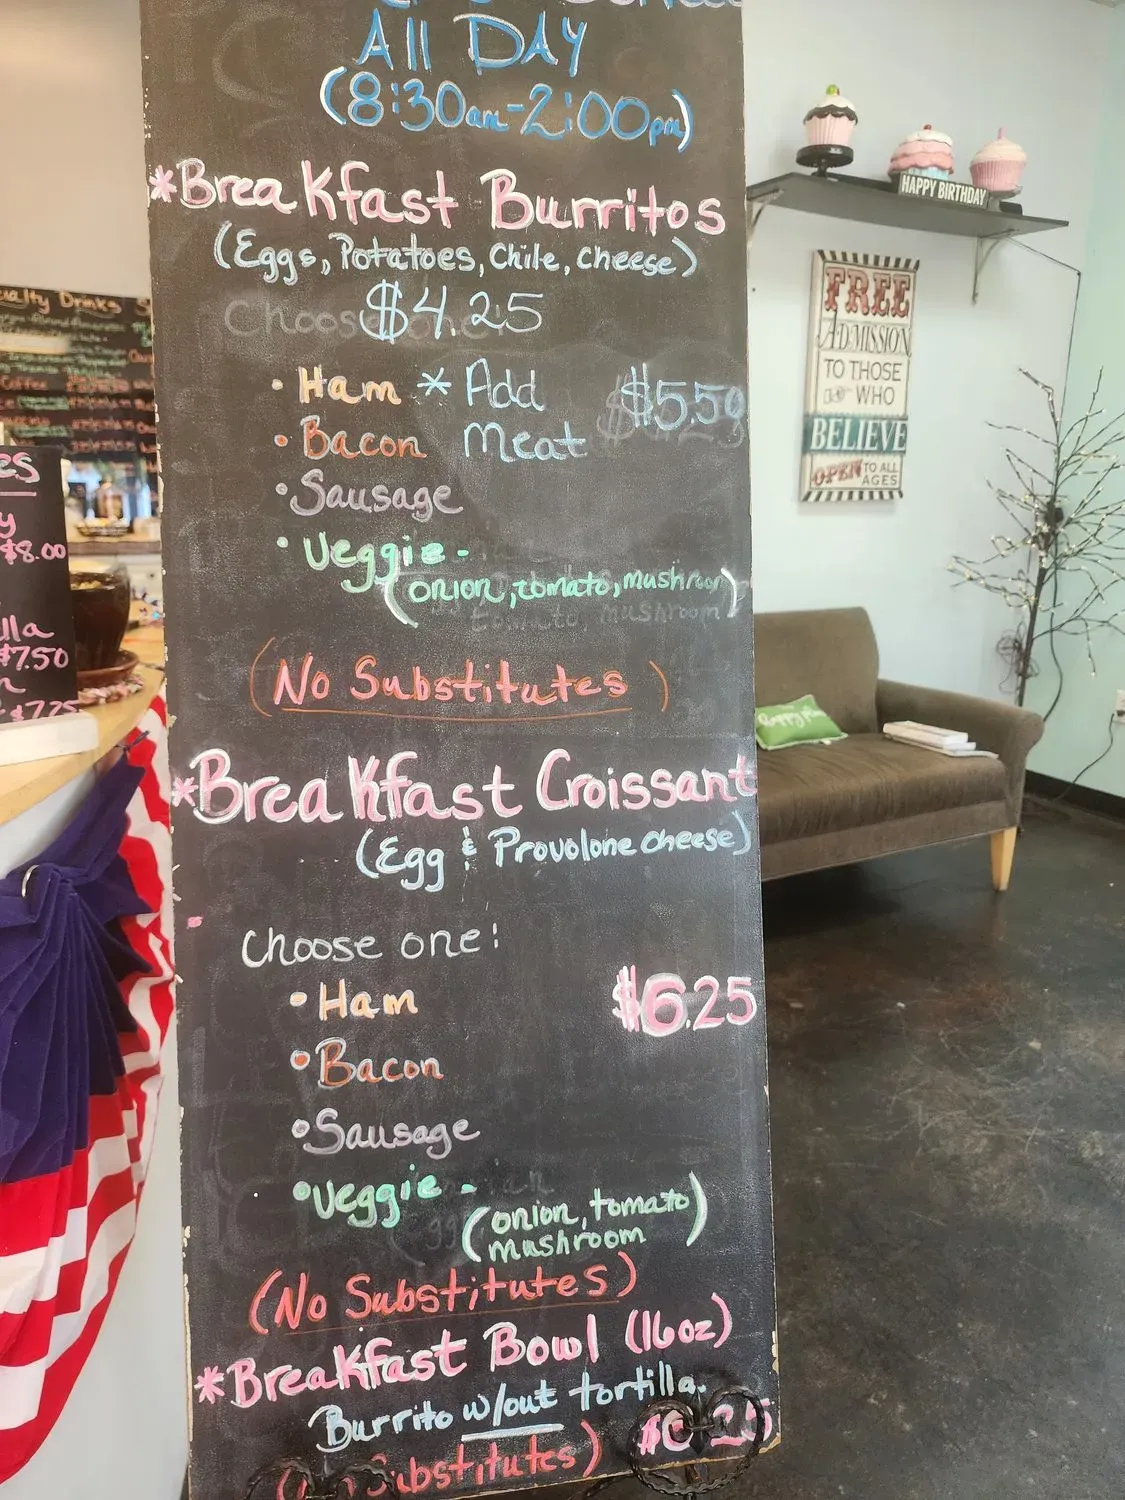 All DAY
(8:30am-2:00pm)
*Breakfast Burritos
(Eggs, Potatoes, Chile, cheese)
$4.25
• Ham * Add $5.50
• Bacon Meat
• Sausage
• Veggie -
(onion, tomato, mushroom)
(No Substitutes)
*Breakfast Croissant
(Egg & Provolone cheese)
Choose one:
• Ham $6.25
• Bacon
• Sausage
• Veggie -
(onion, tomato
mushroom)
(No Substitutes)
*Breakfast Bowl (16oz)
Burrito w/out tortilla.
Substitutes)
Drinks
Coffee
$8.00
$7.50
$7.25
HAPPY BIRTHDAY
FREE
ADMISSION
TO THOSE
WHO
BELIEVE
OPEN TO ALL
AGES